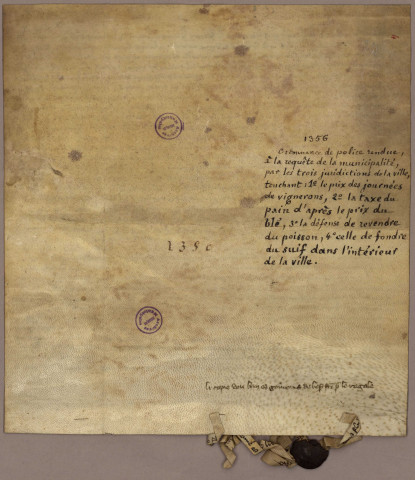 1356
Ordonnance de police rendue,
à la requête de la municipalité,
par les trois juridictions de la ville,
touchant : 1º le prix des journées
de vignerons, 2º la taxe du
pain d'après le prix du
blé, 3º la défense de revendre
du poisson, 4º celle de fondre
du suif dans l'intérieur
de la ville.
1356